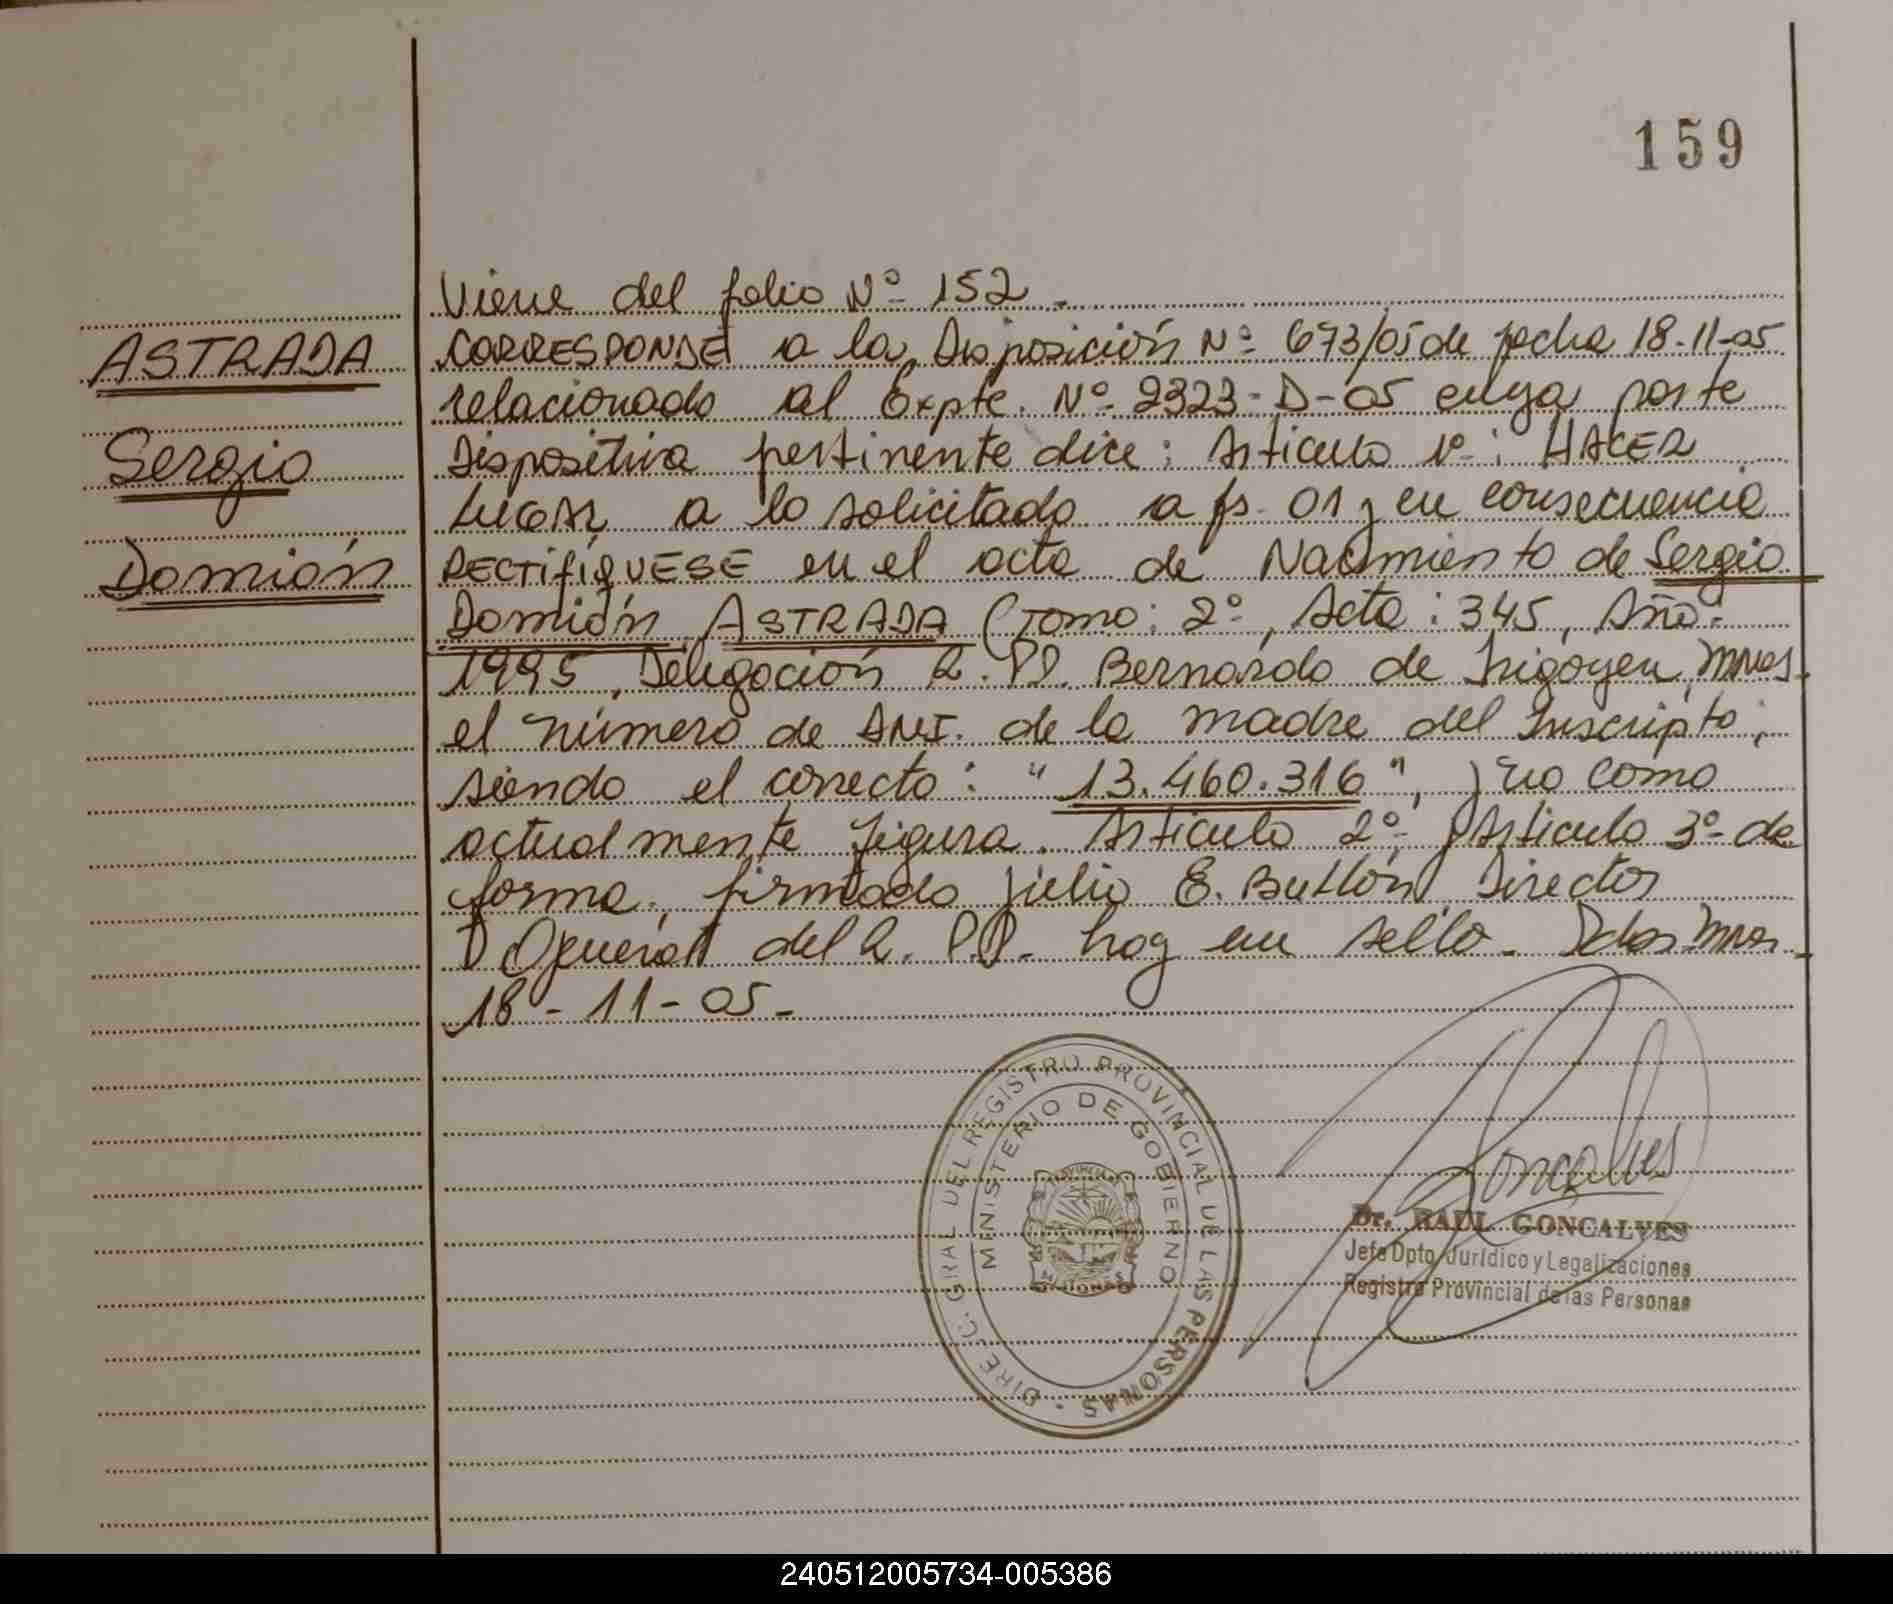 159
Viene del folio Nº 152.
ASTRADA
Sergio
Damián
CORRESPONDE a la Disposición Nº 673/05 de fecha 18-11-05
relacionado al Expte. Nº 2323-D-05 cuya parte
Dispositiva pertinente dice: Artículo 1º: HACER
LUGAR a lo solicitado a fs. 01 y en consecuencia
RECTIFÍQUESE en el acta de Nacimiento de Sergio
Damián ASTRADA (Tomo: 2º, Acta: 345, Año:
1995, Delegación R.PP. Bernardo de Irigoyen, Mnes.
el número de DNI. de la madre del Inscripto;
siendo el correcto: "13.460.316", y no como
actualmente figura. Artículo 2º y Artículo 3º de
forma, firmado Julio E. Butlón Director
General del R.PP. hay un sello. Pdas Mnes.
18-11-05.-
DIREC. GRAL DEL REGISTRO PROVINCIAL DE LAS PERSONAS
MINISTERIO DE GOBIERNO
PROVINCIA
MISIONES
Goncalves
Dr. RAUL GONCALVES
Jefe Dpto. Jurídico y Legalizaciones
Registro Provincial de las Personas
240512005734-005386